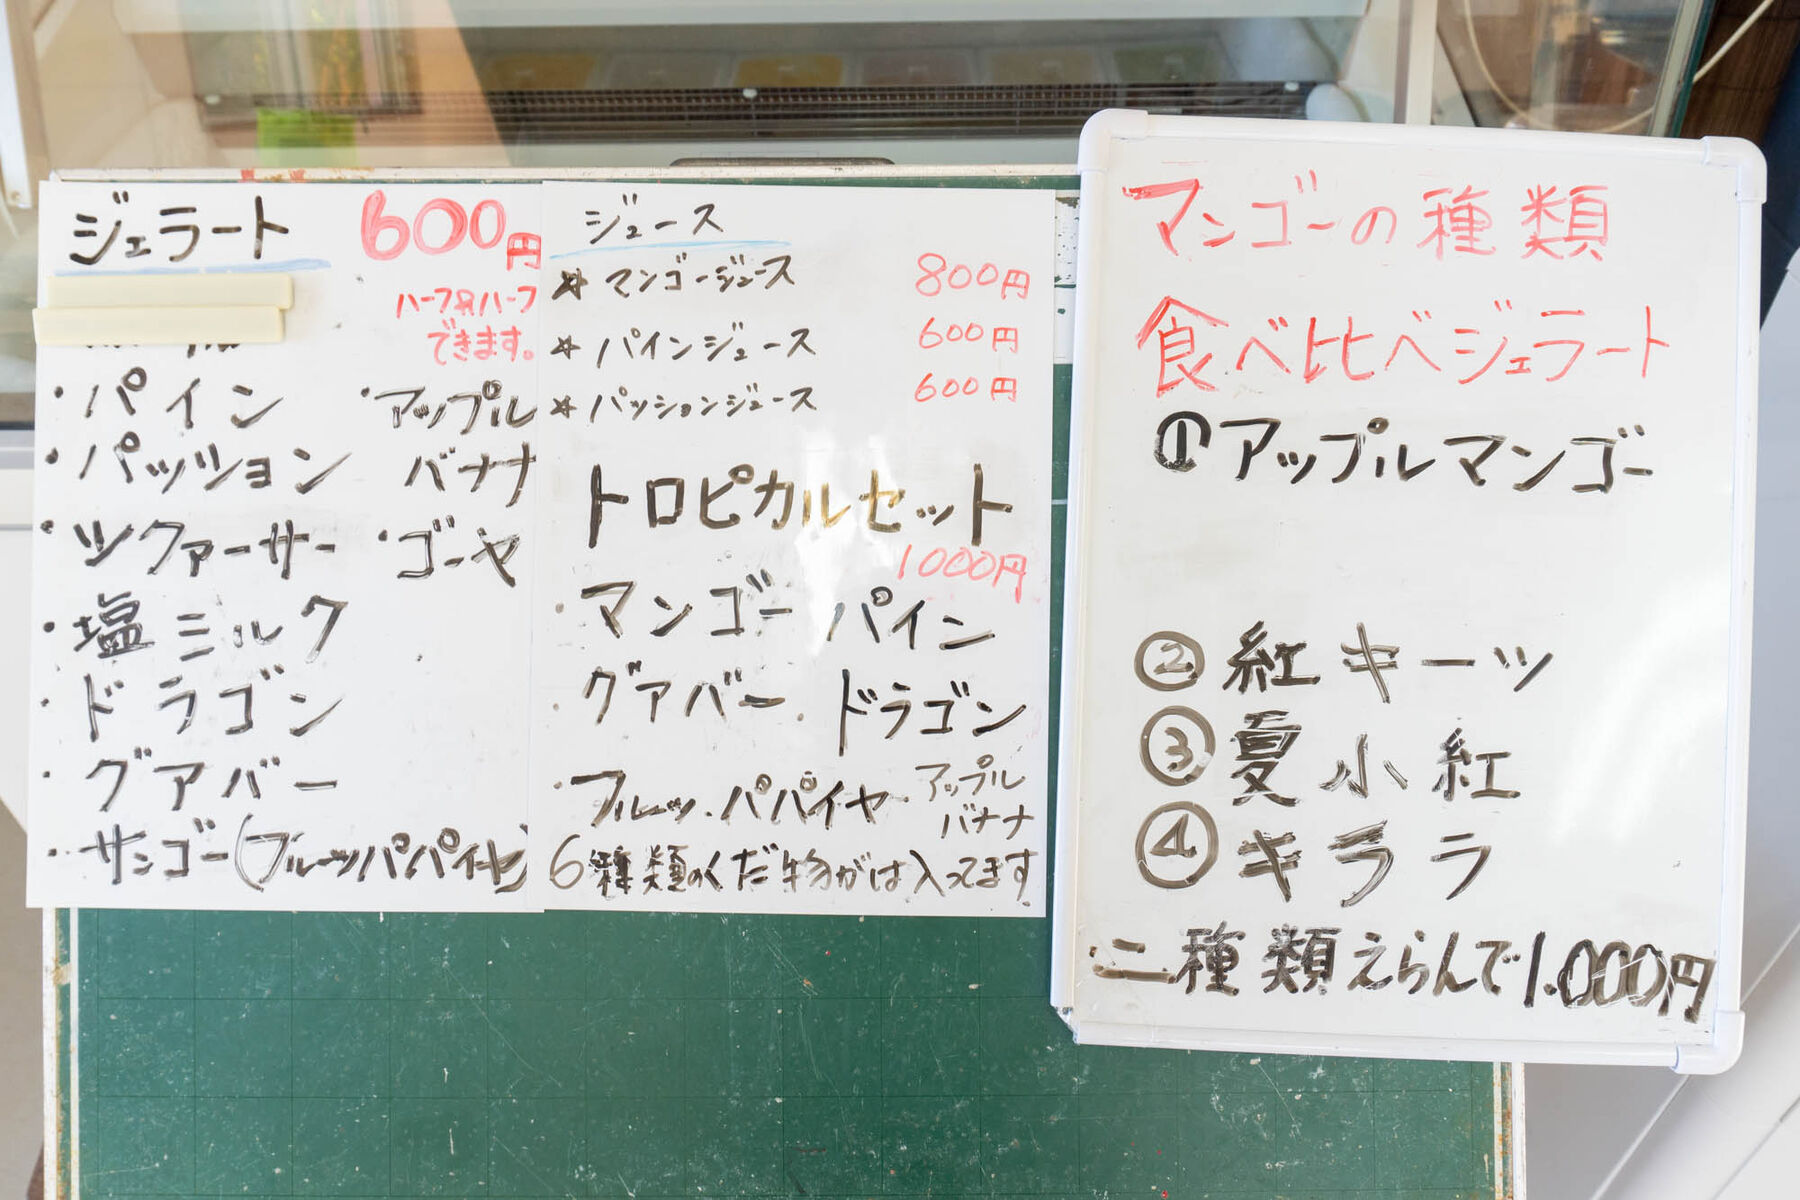 ジェラート 600円
ハーフ&ハーフ
できます。
・パイン ・アップル
・パッション バナナ
・ツクァーサー ・ゴーヤ
・塩ミルク
・ドラゴン
・グアバー
・サンゴー(フルーツパパイヤ)
ジュース
☆マンゴージュース 800円
☆パインジュース 600円
☆パッションジュース 600円
トロピカルセット
1000円
・マンゴー パイン
・グアバー・ドラゴン
・フルーツ・パパイヤ・アップル
バナナ
6種類のくだ物がは入ってます
マンゴーの種類
食べ比べジェラート
①アップルマンゴー
②紅キーツ
③夏小紅
④キララ
・二種類えらんで1.000円